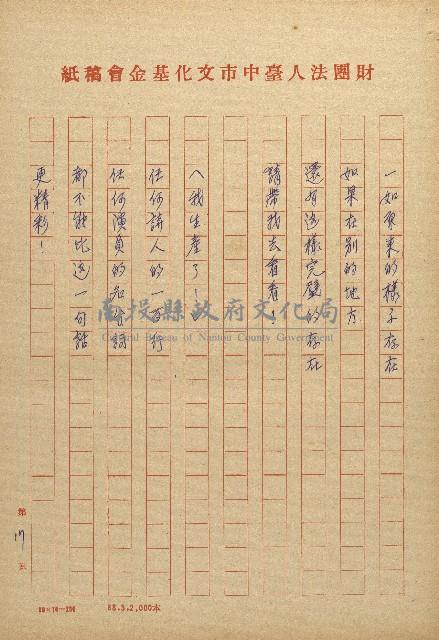 財團法人臺中市文化基金會稿紙
一如原來的樣子存在
如果在別的地方
還有這樣完璧的存在
請帶我去看看！
〈我生產了！〉
任何詩人的一百行
任何演員的名台詞
都不能比這一句話
更精彩！
南投縣政府文化局
Cultural Bureau of Nantou County Government
第 17 頁
88.3.2,000本